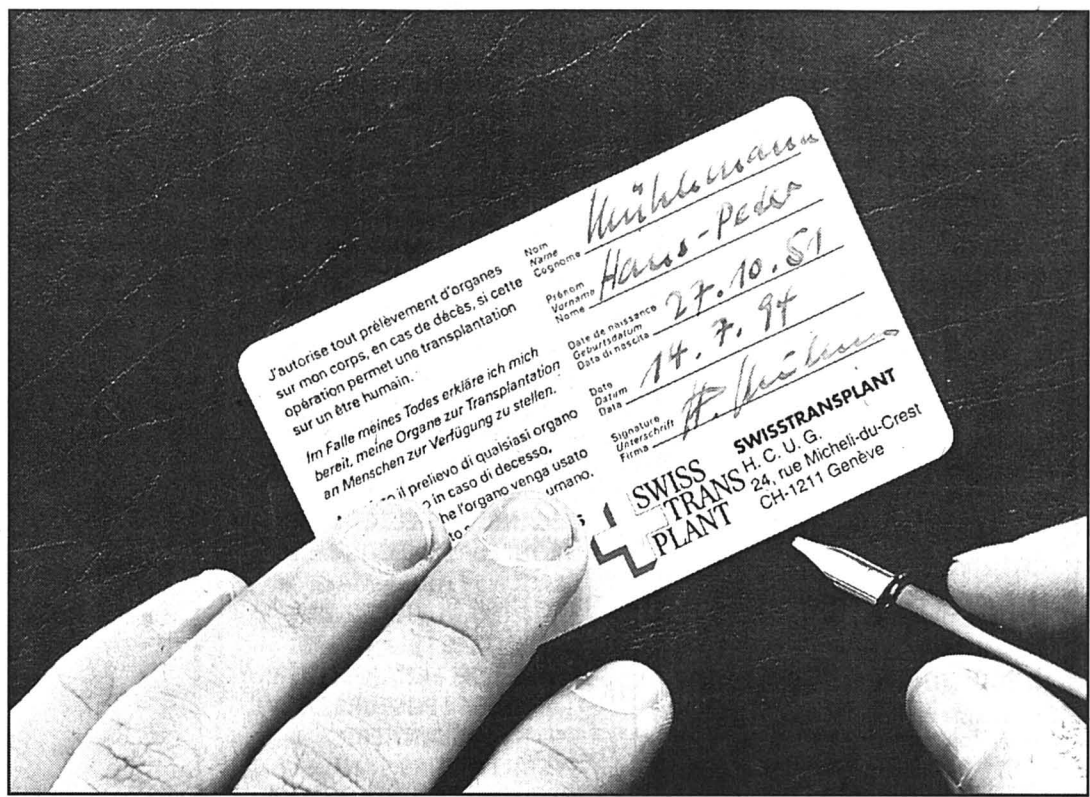 J'autorise tout prélèvement d'organes
sur mon corps, en cas de décès, si cette
opération permet une transplantation
sur un être humain.
Im Falle meines Todes erkläre ich mich
bereit, meine Organe zur Transplantation
an Menschen zur Verfügung zu stellen.
il prelievo di qualsiasi organo
in caso di decesso,
he l'organo venga usato
umano.
Nom
Name
Cognome
Mühlemann
Prénom
Vorname
Nome
Hans-Peter
Date de naissance
Geburtsdatum
Data di nascita
27.10.51
Date
Datum
Data
14.7.94
Signature
Unterschrift
Firma
SWISS
TRANS
PLANT
SWISSTRANSPLANT
H. C. U. G.
24, rue Micheli-du-Crest
CH-1211 Genève